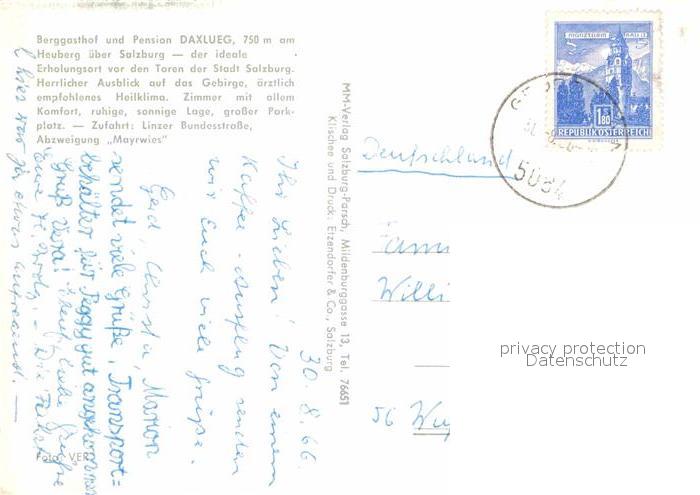 Berggasthof und Pension DAXLUEG, 750 m am
Heuberg über Salzburg — der ideale
Erholungsort vor den Toren der Stadt Salzburg.
Herrlicher Ausblick auf das Gebirge, ärztlich
empfohlenes Heilklima. Zimmer mit allem
Komfort, ruhige, sonnige Lage, großer Park-
platz. — Zufahrt: Linzer Bundesstraße,
Abzweigung „Mayrwies“
30.8.66.
Ihr Lieben! Von einem
Kaffee-Ausflug senden
wir Euch viele Grüße.
Gerd, Christa, Marion
sendet viele Grüße, Transport=
behälter für Peggy gut angekommen
Gruß Vera!
liebe Grüße
Die Fahrt
hier war für
Foto: VER
MM-Verlag Salzburg-Parsch, Mildenburggasse 13, Tel. 76651
Klischee und Druck: Etzendorfer & Co., Salzburg
MÜNZTURM HALL
S 1.80
REPUBLIK ÖSTERREICH
5084
Deutschland
Fam
Willi
56 Wup
privacy protection
Datenschutz